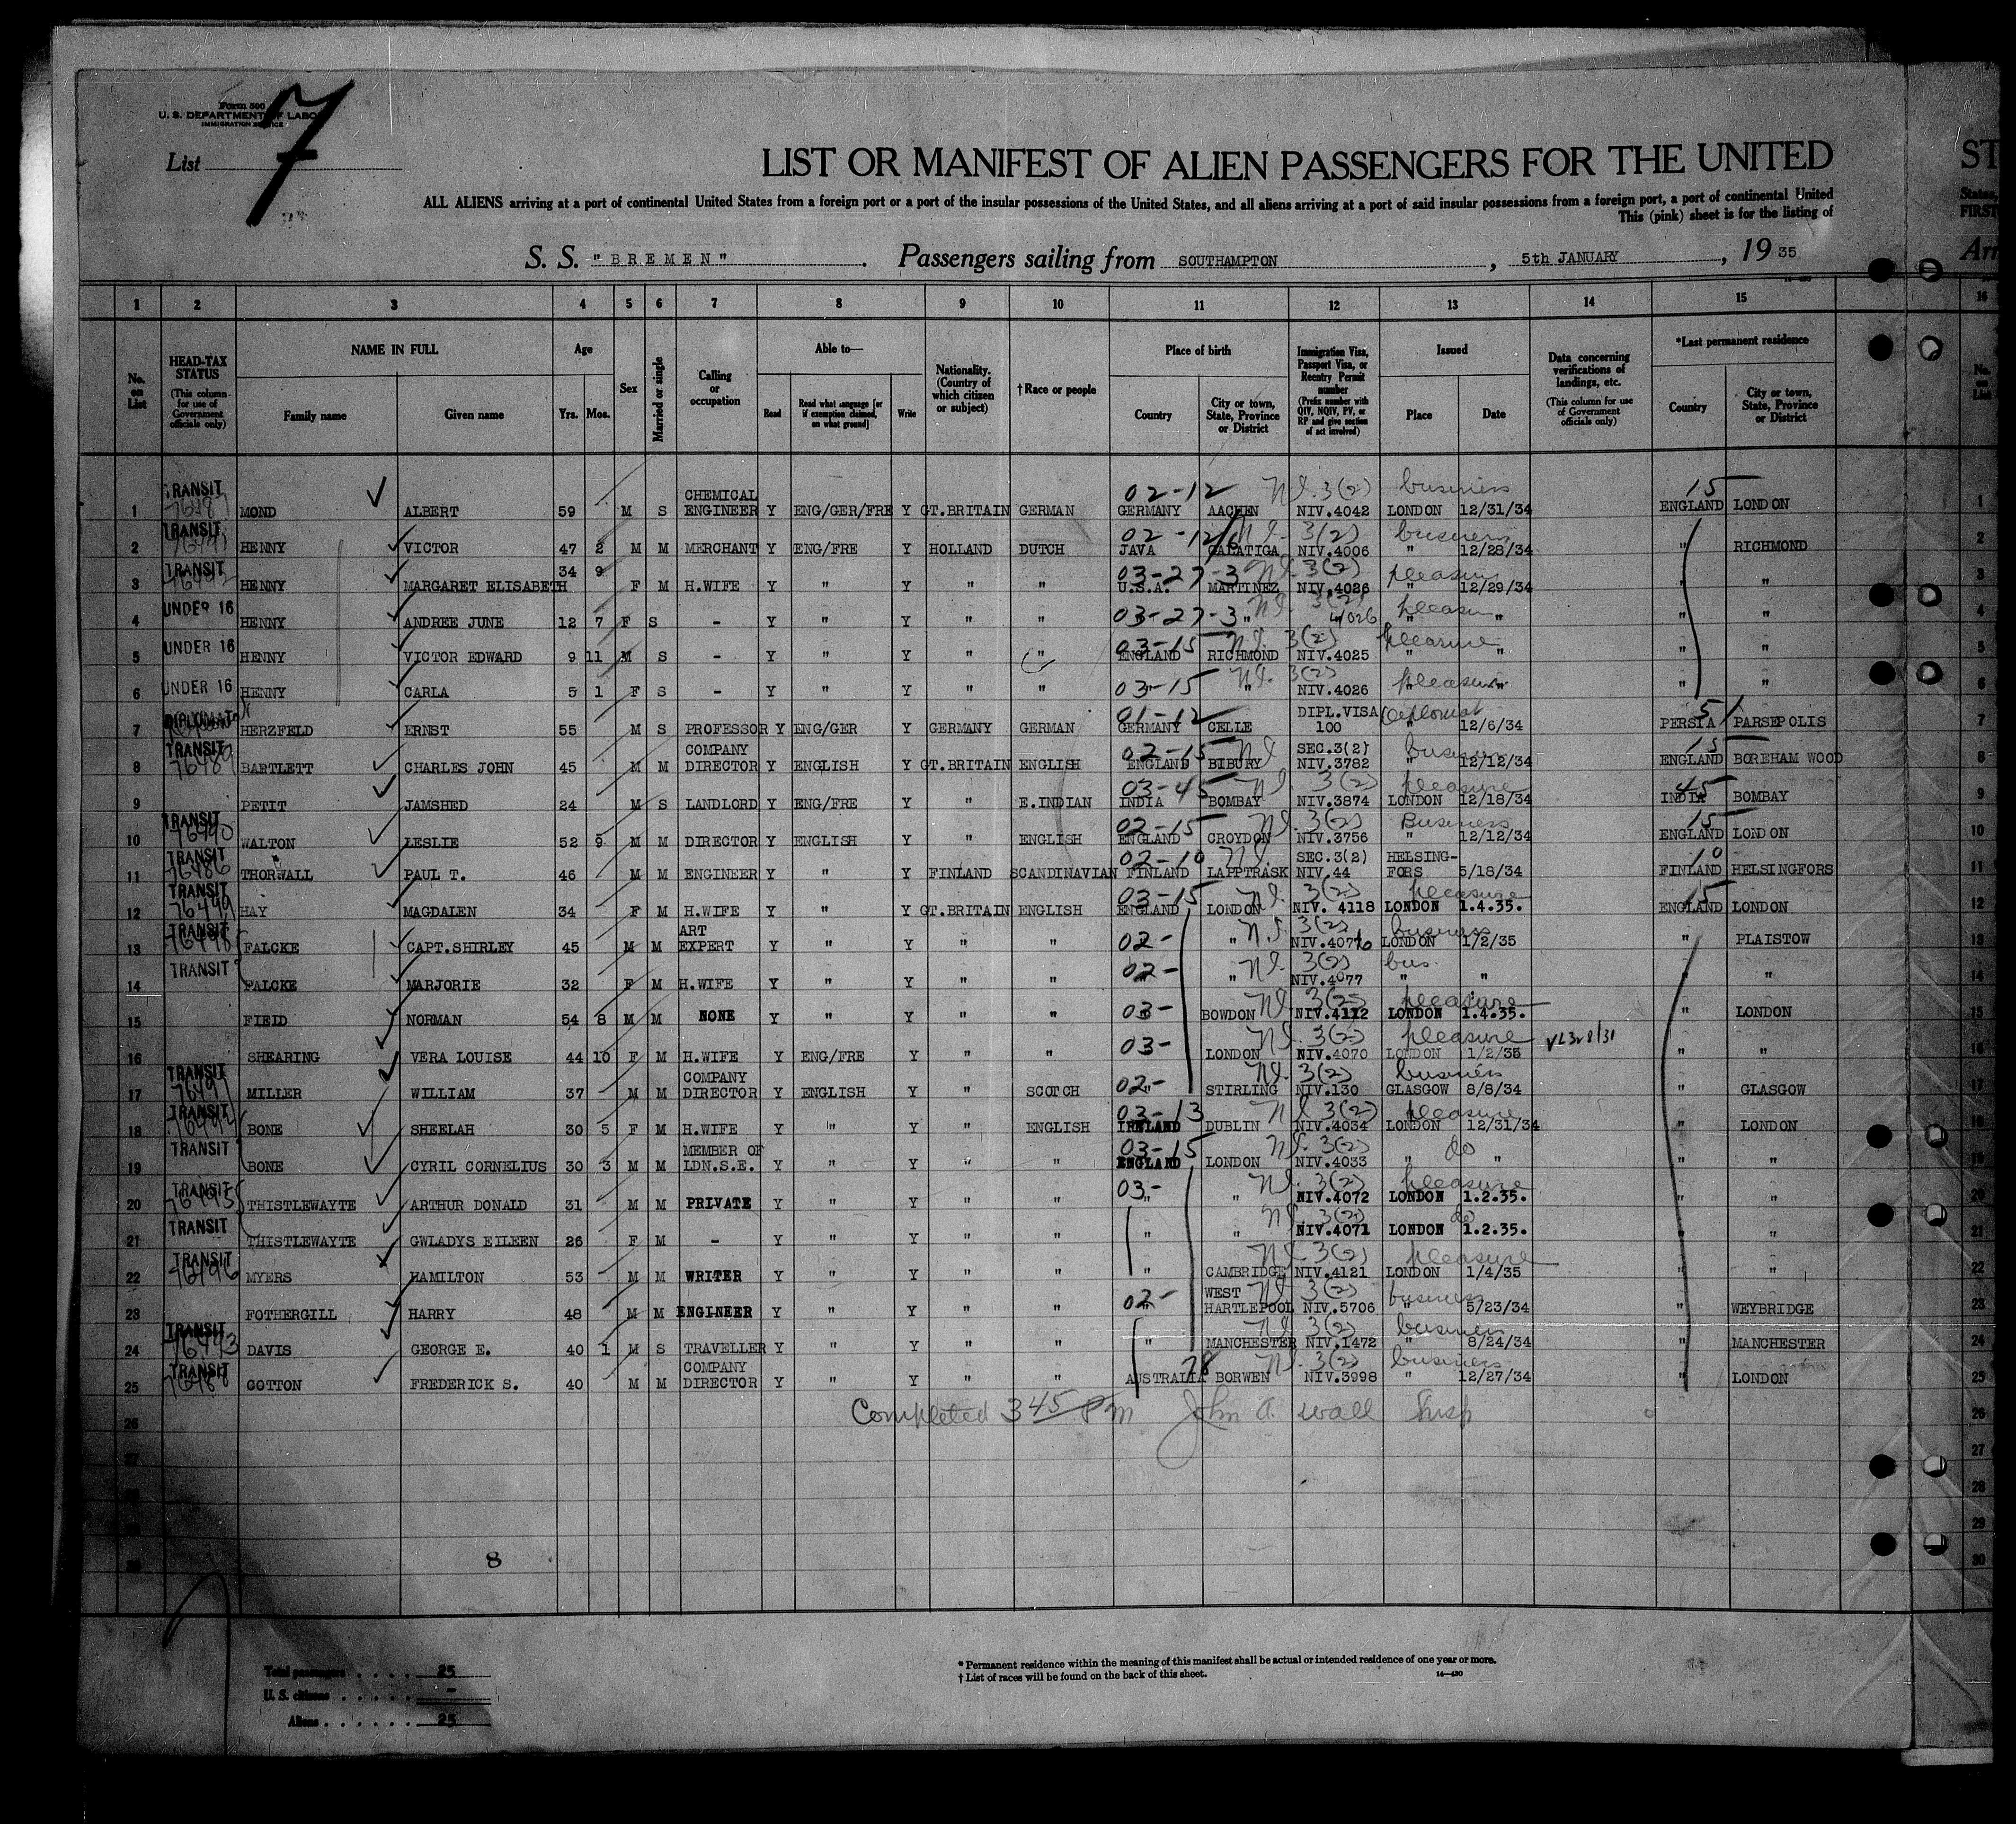 Form 500
U. S. DEPARTMENT OF LABOR
IMMIGRATION SERVICE
List 7
LIST OR MANIFEST OF ALIEN PASSENGERS FOR THE UNITED
ST
ALL ALIENS arriving at a port of continental United States from a foreign port or a port of the insular possessions of the United States, and all aliens arriving at a port of said insular possessions from a foreign port, a port of continental United
States,
This (pink) sheet is for the listing of
FIRST
S. S. "BREMEN". Passengers sailing from SOUTHAMPTON, 5th JANUARY, 1935
Arr
1 2 3 4 5 6 7 8 9 10 11 12 13 14 15 16
No. on List
HEAD-TAX STATUS (This column for use of Government officials only)
NAME IN FULL
Family name Given name
Age Yrs. Mos.
Sex
Married or single
Calling or occupation
Able to—
Read Read what language [or if exemption claimed, on what ground] Write
Nationality. (Country of which citizen or subject)
† Race or people
Place of birth
Country City or town, State, Province or District
Immigration Visa, Passport Visa, or Reentry Permit number (Prefix number with QIV, NQIV, PV, or RP and give section of act involved)
Issued
Place Date
Data concerning verifications of landings, etc. (This column for use of Government officials only)
*Last permanent residence
Country City or town, State, Province or District
No. on List
1 TRANSIT MOND ALBERT 59 M S CHEMICAL ENGINEER Y ENG/GER/FRE Y GT.BRITAIN GERMAN 02-12 GERMANY AACHEN 3(2) NIV.4042 business LONDON 12/31/34 15 ENGLAND LONDON 1
2 TRANSIT HENNY VICTOR 47 2 M M MERCHANT Y ENG/FRE Y HOLLAND DUTCH 02-12/6 JAVA SALATIGA 3(2) NIV.4006 business " 12/28/34 " RICHMOND 2
3 TRANSIT HENNY MARGARET ELISABETH 34 9 F M H.WIFE Y " Y " " 03-27-3 U.S.A. MARTINEZ 3(2) NIV.4026 pleasure 12/29/34 " " 3
4 UNDER 16 HENNY ANDREE JUNE 12 7 F S - Y " Y " " 03-27-3 " 3(2) 4026 " " " " 4
5 UNDER 16 HENNY VICTOR EDWARD 9 11 M S - Y " Y " " 03-15 ENGLAND RICHMOND 3(2) NIV.4025 pleasure " " " " 5
6 UNDER 16 HENNY CARLA 5 1 F S - Y " Y " " 03-15 " 3(2) NIV.4026 pleasure " " " " 6
7 DIPLOMAT HERZFELD ERNST 55 M S PROFESSOR Y ENG/GER Y GERMANY GERMAN 01-12 GERMANY CELLE DIPL.VISA 100 Diplomat " 12/6/34 51 PERSIA PARSEPOLIS 7
8 TRANSIT 76489 BARTLETT CHARLES JOHN 45 M M COMPANY DIRECTOR Y ENGLISH Y GT.BRITAIN ENGLISH 02-15 ENGLAND BIBURY SEC.3(2) NIV.3782 business " 12/12/34 15 ENGLAND BOREHAM WOOD 8
9 PETIT JAMSHED 24 M S LANDLORD Y ENG/FRE Y " E.INDIAN 03-45 INDIA BOMBAY 3(2) NIV.3874 pleasure LONDON 12/18/34 45 INDIA BOMBAY 9
10 TRANSIT 76490 WALTON LESLIE 52 9 M M DIRECTOR Y ENGLISH Y " ENGLISH 02-15 ENGLAND CROYDON 3(2) NIV.3756 Business " 12/12/34 15 ENGLAND LONDON 10
11 TRANSIT 76486 THORWALL PAUL T. 46 M M ENGINEER Y " Y FINLAND SCANDINAVIAN 02-10 FINLAND LAPPTRASK SEC.3(2) NIV.44 HELSING-FORS 5/18/34 10 FINLAND HELSINGFORS 11
12 TRANSIT 76499 HAY MAGDALEN 34 F M H.WIFE Y " Y GT.BRITAIN ENGLISH 03-15 ENGLAND LONDON 3(2) NIV. 4118 pleasure LONDON 1.4.35. 15 ENGLAND LONDON 12
13 TRANSIT 76498 FALCKE CAPT.SHIRLEY 45 M M ART EXPERT Y " Y " " 02- " 3(2) NIV.4076 business LONDON 1/2/35 " PLAISTOW 13
14 TRANSIT FALCKE MARJORIE 32 F M H.WIFE Y " Y " " 02- " 3(2) NIV.4077 bus. " " " " 14
15 FIEID NORMAN 54 8 M M NONE Y " Y " " 03- BOWDON 3(2) NIV.4112 pleasure LONDON 1.4.35. " LONDON 15
16 SHEARING VERA LOUISE 44 10 F M H.WIFE Y ENG/FRE Y " " 03- LONDON 3(2) NIV.4070 pleasure LONDON 1/2/35 " " 16
17 TRANSIT 76497 MILLER WILLIAM 37 M M COMPANY DIRECTOR Y ENGLISH Y " SCOTCH 02- " STIRLING 3(2) NIV.130 business GLASGOW 8/8/34 " GLASGOW 17
18 TRANSIT BONE SHEELAH 30 5 F M H.WIFE Y " Y " ENGLISH 03-13 IRELAND DUBLIN 3(2) NIV.4034 pleasure LONDON 12/31/34 " LONDON 18
19 TRANSIT BONE CYRIL CORNELIUS 30 3 M M MEMBER OF LDN.S.E. Y " Y " " 03-15 ENGLAND LONDON 3(2) NIV.4033 do " " " " 19
20 TRANSIT 76495 THISTLEWAYTE ARTHUR DONALD 31 M M PRIVATE Y " Y " " 03- " " 3(2) NIV.4072 pleasure LONDON 1.2.35. " " 20
21 TRANSIT THISTLEWAYTE GWLADYS EILEEN 26 F M - Y " Y " " " " 3(2) NIV.4071 do LONDON 1.2.35. " " 21
22 TRANSIT 76496 MYERS HAMILTON 53 M M WRITER Y " Y " " " CAMBRIDGE 3(2) NIV.4121 pleasure LONDON 1/4/35 " " 22
23 FOTHERGILL HARRY 48 M M ENGINEER Y " Y " " 02- " WEST HARTLEPOOL 3(2) NIV.5706 business " 5/23/34 " WEYBRIDGE 23
24 TRANSIT 76493 DAVIS GEORGE E. 40 1 M S TRAVELLER Y " Y " " " MANCHESTER 3(2) NIV.1472 business " 8/24/34 " MANCHESTER 24
25 TRANSIT COTTON FREDERICK S. 40 M M COMPANY DIRECTOR Y " Y " " 78 AUSTRALIA BORWEN 3(2) NIV.3998 business " 12/27/34 " LONDON 25
26 Completed 345 PM John A. Wall Insp 26
27 27
28
29
30 30
8
Total passengers .... 25
U. S. citizens ..... -
Aliens ...... 25
* Permanent residence within the meaning of this manifest shall be actual or intended residence of one year or more.
† List of races will be found on the back of this sheet.
14—430